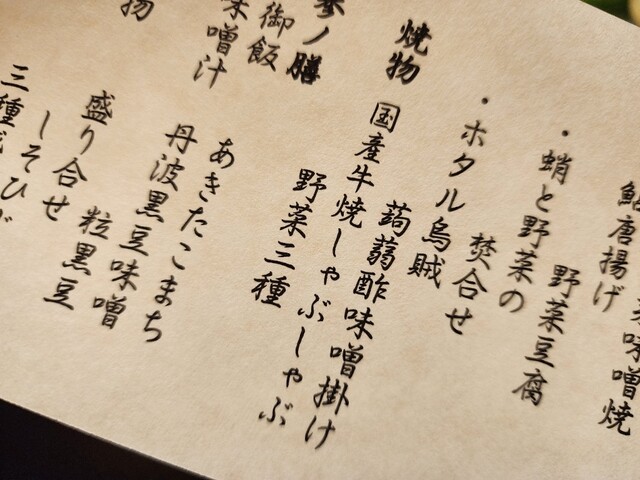 味噌焼
唐揚げ
野菜豆腐
・蛸と野菜の
焚合せ
・ホタル烏賊
蒟蒻酢味噌掛け
焼物 国産牛焼しゃぶしゃぶ
野菜三種
参ノ膳
御飯 あきたこまち
味噌汁 丹波黒豆味噌
粒黒豆
物 盛り合せ
しそひ
三種